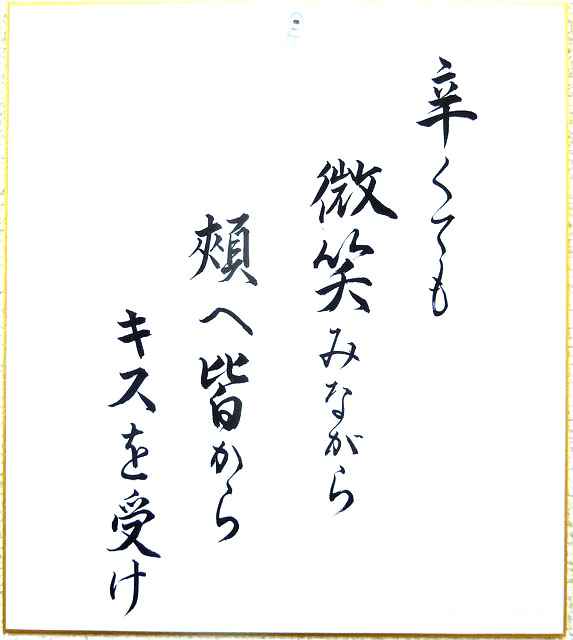 辛くても
微笑みながら
頬へ皆から
キスを受け